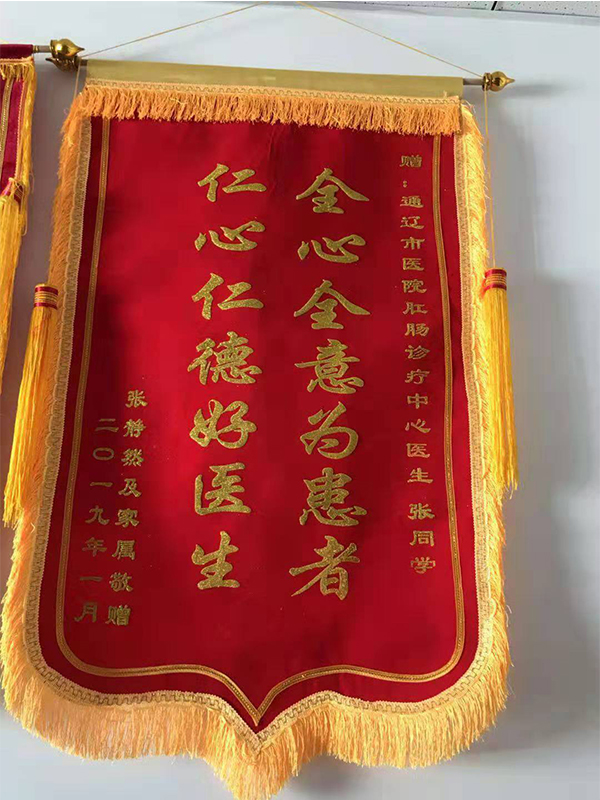 赠：通辽市医院肛肠诊疗中心医生 张同学
全心全意为患者
仁心仁德好医生
张静然及家属敬赠
二〇一九年一月